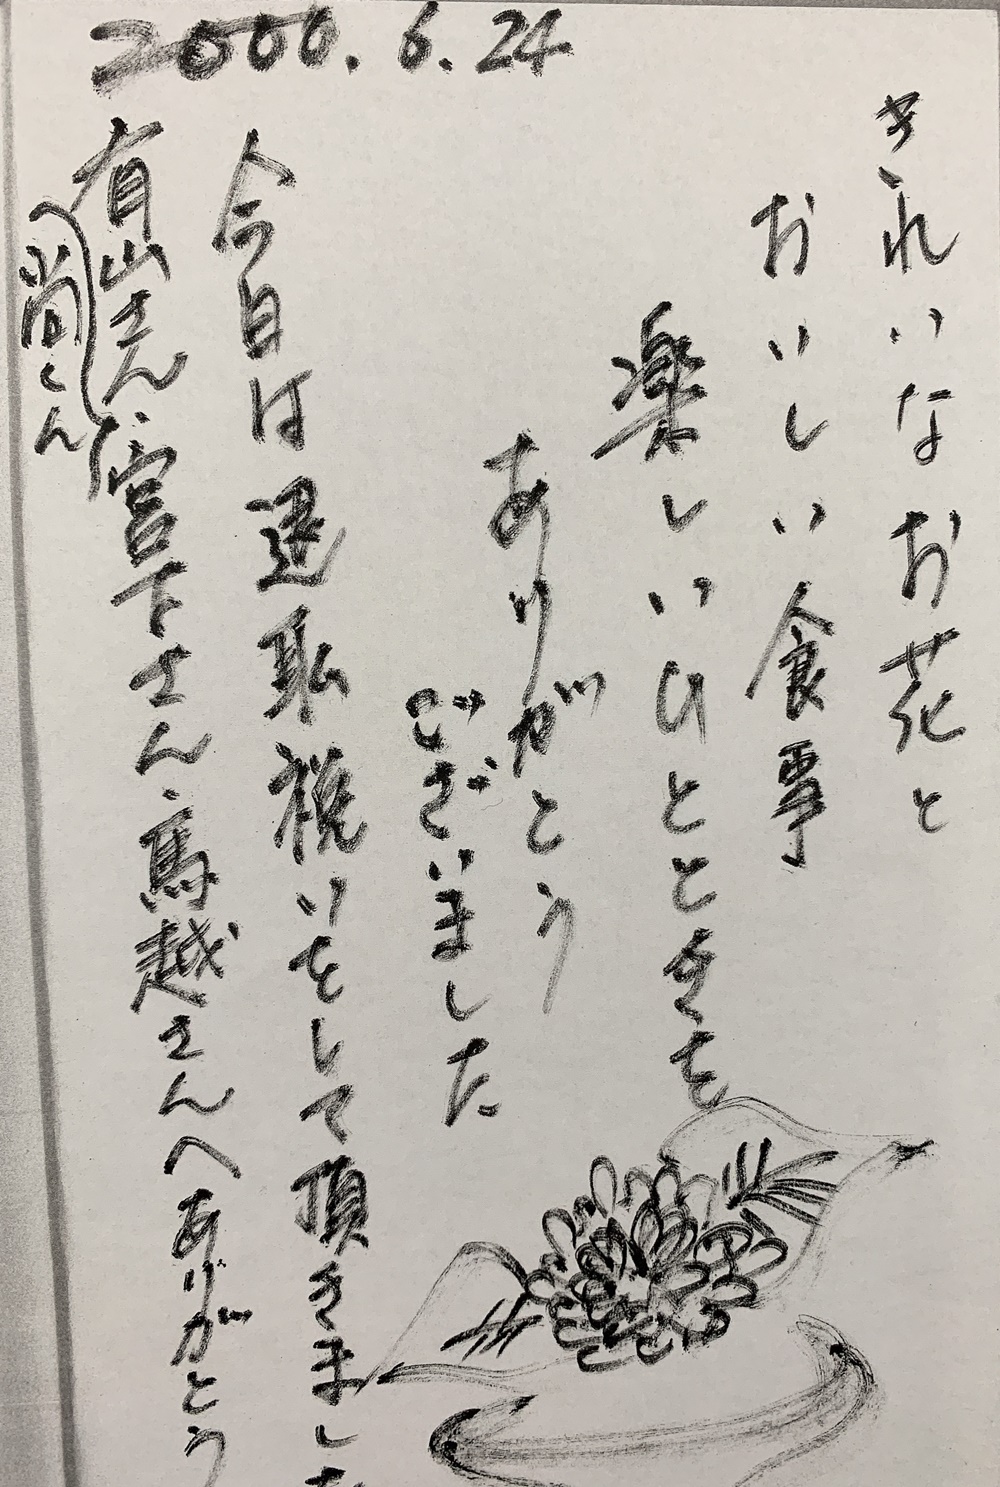 2000.6.24
きれいなお花と
おいしい食事
楽しいひとときを
ありがとう
ございました
今日は退職祝いをして頂きました
有山さん、宮下さん、馬越さんへありがとう
尚くん